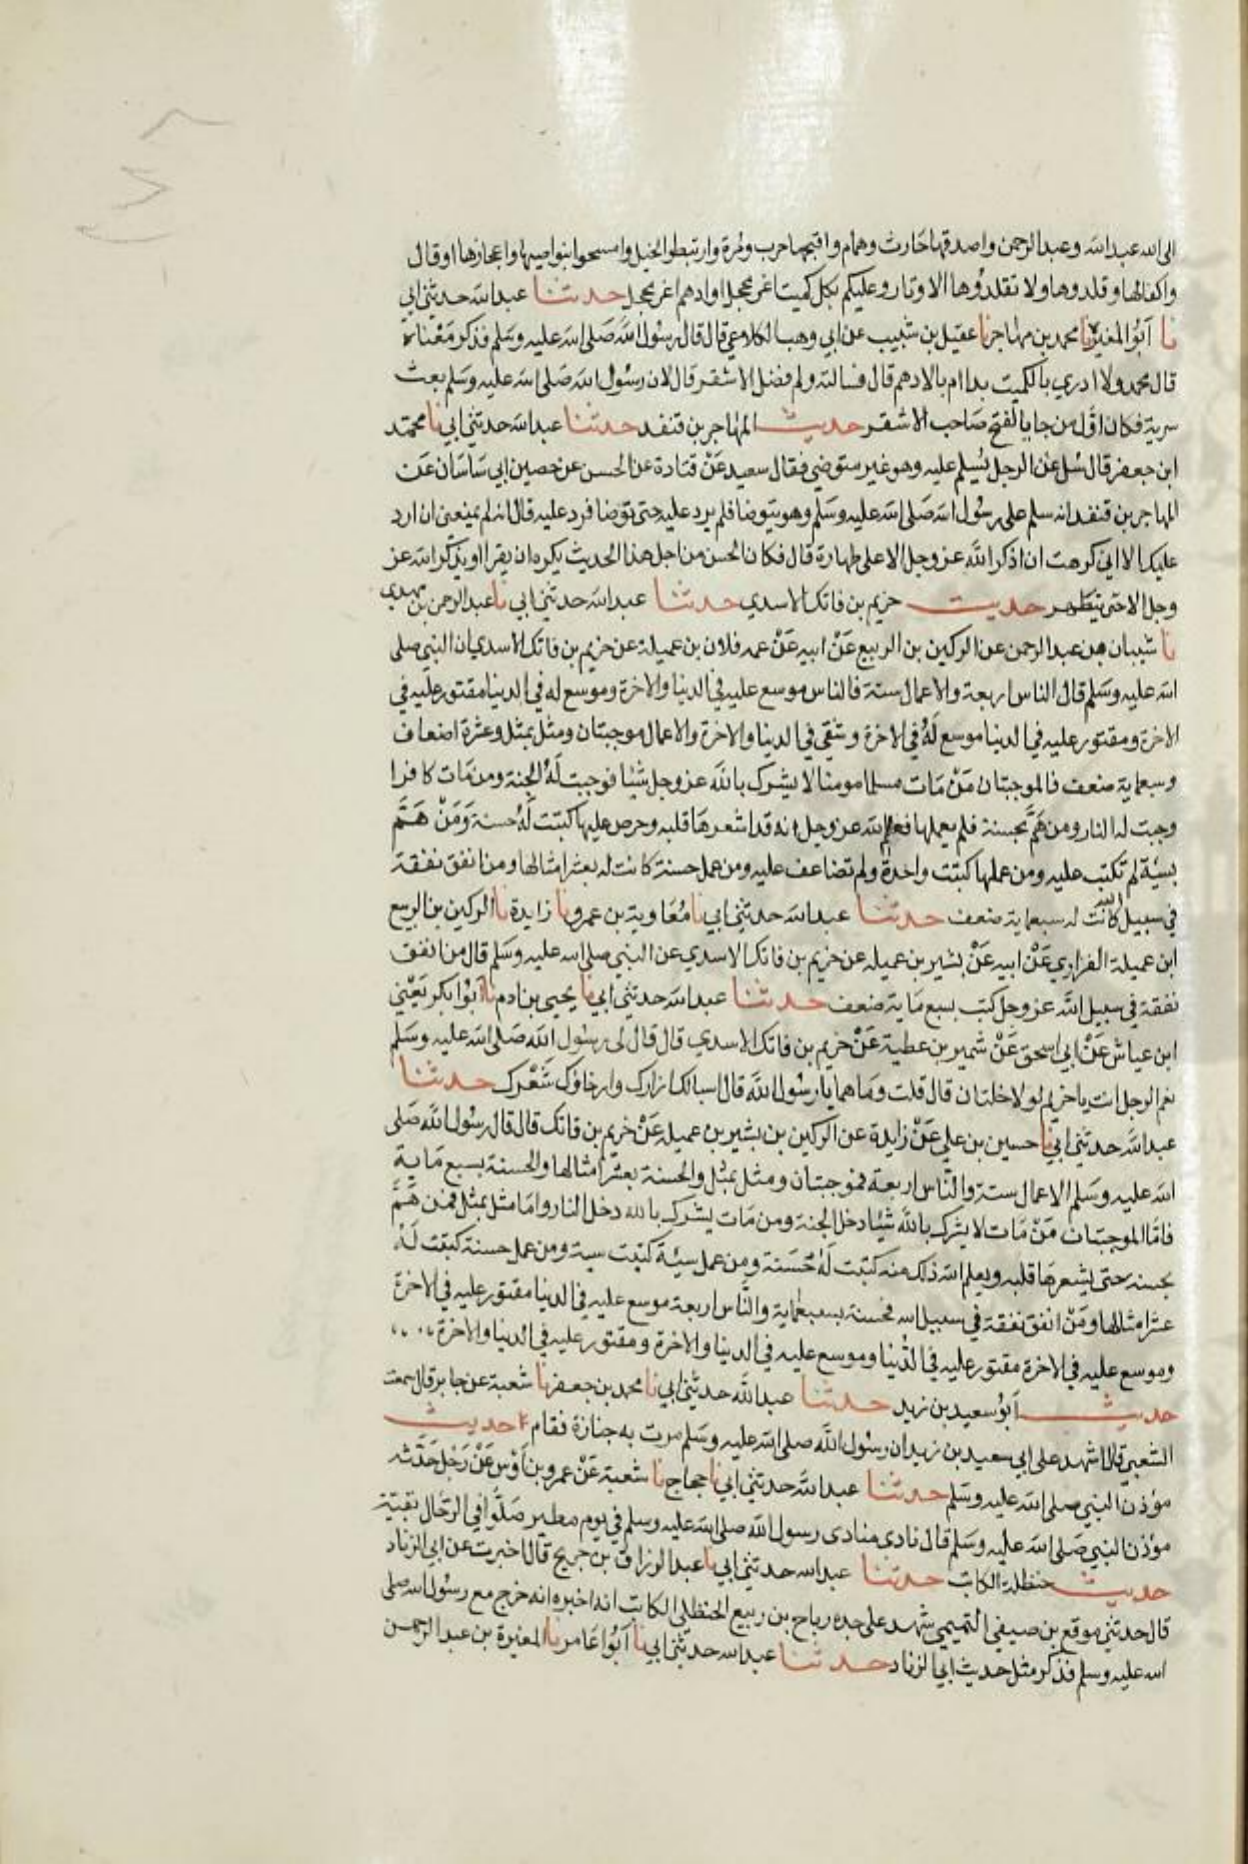 الى الله عبد الله وعبد الرحمن واصدقها حارث وهمام واقبحها حرب ومرة وارتبطوا الخيل وامسحوا بنواصيها واعجازها او قال
واكفالها وقلدوها ولا تقلدوها الاوتار وعليكم بكل كميت اغر محجل او ادهم اغر محجل حدثنا عبد الله حدثني ابي
نا ابو المغيرة نا محمد بن مهاجر نا عقيل بن شبيب عن ابي وهب الكلاعي قال قال رسول الله صلى الله عليه وسلم فذكر معناه
قال محمد ولا ادري بالكميت بدا ام بالادهم قال فسالته ولم فضل الاشقر قال لان رسول الله صلى الله عليه وسلم بعث
سرية فكان اول من جا بالفتح صاحب الاشقر حديث المهاجر بن قنفد حدثنا عبد الله حدثني ابي نا محمد
ابن جعفر قال سئل عن الرجل يسلم عليه وهو غير متوضي فقال سعيد عن قتادة عن الحسن عن حصين ابي ساسان عن
المهاجر بن قنفد انه سلم على رسول الله صلى الله عليه وسلم وهو يتوضا فلم يرد عليه حتى توضا فرد عليه قال انه لم يمنعني ان ارد
عليك الا اني كرهت ان اذكر الله عز وجل الا على طهارة قال فكان الحسن من اجل هذا الحديث يكره ان يقرا او يذكر الله عز
وجل الا حتى يتطهر حديث خريم بن فاتك الاسدي حدثنا عبد الله حدثني ابي نا عبد الرحمن بن مهدي
نا شيبان بن عبد الرحمن عن الركين بن الربيع عن ابيه عن عمه فلان بن عميلة عن خريم بن فاتك الاسدي ان النبي صلى
الله عليه وسلم قال الناس اربعة والاعمال ستة فالناس موسع عليه في الدنيا والاخرة وموسع له في الدنيا مقتور عليه في
الاخرة ومقتور عليه في الدنيا موسع له في الاخرة وشقي في الدنيا والاخرة والاعمال موجبتان ومثل بمثل وعشرة اضعاف
وسبعماية ضعف فالموجبتان من مات مسلما مومنا لا يشرك بالله عز وجل شيا فوجبت له الجنة ومن مات كافرا
وجبت له النار ومن هم بحسنة فلم يعملها فعلم الله عز وجل انه قد اشعرها قلبه وحرص عليها كتبت له حسنة ومن هم
بسيئة لم تكتب عليه ومن عملها كتبت واحدة ولم تضاعف عليه ومن عمل حسنة كانت له بعشر امثالها ومن انفق نفقة
في سبيل الله كانت له سبعماية ضعف حدثنا عبد الله حدثني ابي نا معاوية بن عمرو نا زايدة نا الركين بن الربيع
ابن عميلة الفزاري عن ابيه عن بشير بن عميله عن خريم بن فاتك الاسدي عن النبي صلى الله عليه وسلم قال من انفق
نفقة في سبيل الله عز وجل كتب بسبع ماية ضعف حدثنا عبد الله حدثني ابي نا يحيى بن ادم نا ابو بكر يعني
ابن عياش عن ابي اسحق عن شمير بن عطية عن خريم بن فاتك الاسدي قال قال لي رسول الله صلى الله عليه وسلم
نعم الرجل انت يا خريم لولا خلتان قال قلت وما هما يا رسول الله قال اسبالك ازارك وارخاؤك شعرك حدثنا
عبد الله حدثني ابي نا حسين بن علي عن زايدة عن الركين بن بشير بن عميله عن خريم بن فاتك قال قال رسول الله صلى
الله عليه وسلم الاعمال ستة والناس اربعة فموجبتان ومثل بمثل والحسنة بعشر امثالها والحسنة بسبع ماية
فاما الموجبتان من مات لا يشرك بالله شيئا دخل الجنة ومن مات يشرك بالله دخل النار واما مثل بمثل فمن هم
بحسنه حتى يشعرها قلبه ويعلم الله ذلك منه كتبت له حسنة ومن عمل سيئة كتبت سية ومن عمل حسنة كتبت له
عشر امثالها ومن انفق نفقة في سبيل الله فحسنة بسبعماية والناس اربعة موسع عليه في الدنيا مقتور عليه في الاخرة
وموسع عليه في الاخرة مقتور عليه في الدنيا وموسع عليه في الدنيا والاخرة ومقتور عليه في الدنيا والاخرة
حديث ابو سعيد بن زيد حدثنا عبد الله حدثني ابي نا محمد بن جعفر نا شعبة عن جابر قال سمعت
الشعبي قال اشهد على ابي سعيد بن زيد ان رسول الله صلى الله عليه وسلم مرت به جنازة فقام حديث
مؤذن النبي صلى الله عليه وسلم حدثنا عبد الله حدثني ابي نا حجاج نا شعبة عن عمرو بن اوس عن رجل حدثه
مؤذن النبي صلى الله عليه وسلم قال نادى منادى رسول الله صلى الله عليه وسلم في يوم مطير صلوا في الرحال بقية
حديث حنظلة الكاتب حدثنا عبد الله حدثني ابي نا عبد الرزاق بن جريج قال اخبرت عن ابي الزناد
قال حدثني موقع بن صيفي التميمي شهد على جده رباح بن ربيع الحنظلي الكاتب انه اخبره انه خرج مع رسول الله صلى
الله عليه وسلم فذكر مثل حديث ابي الزناد حدثنا عبد الله حدثني ابي نا ابو عامر نا المغيرة بن عبد الرحمن